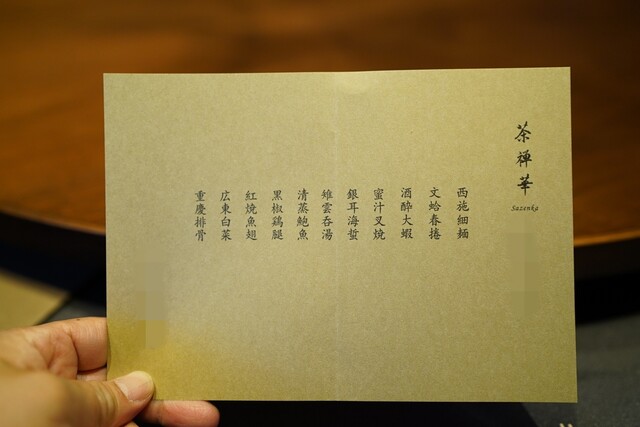 茶禅華
Sazenka
西施細麺
文蛤春捲
酒酔大蝦
蜜汁叉焼
銀耳海蜇
雉雲呑湯
清蒸鮑魚
黒椒鶏腿
紅焼魚翅
広東白菜
重慶排骨